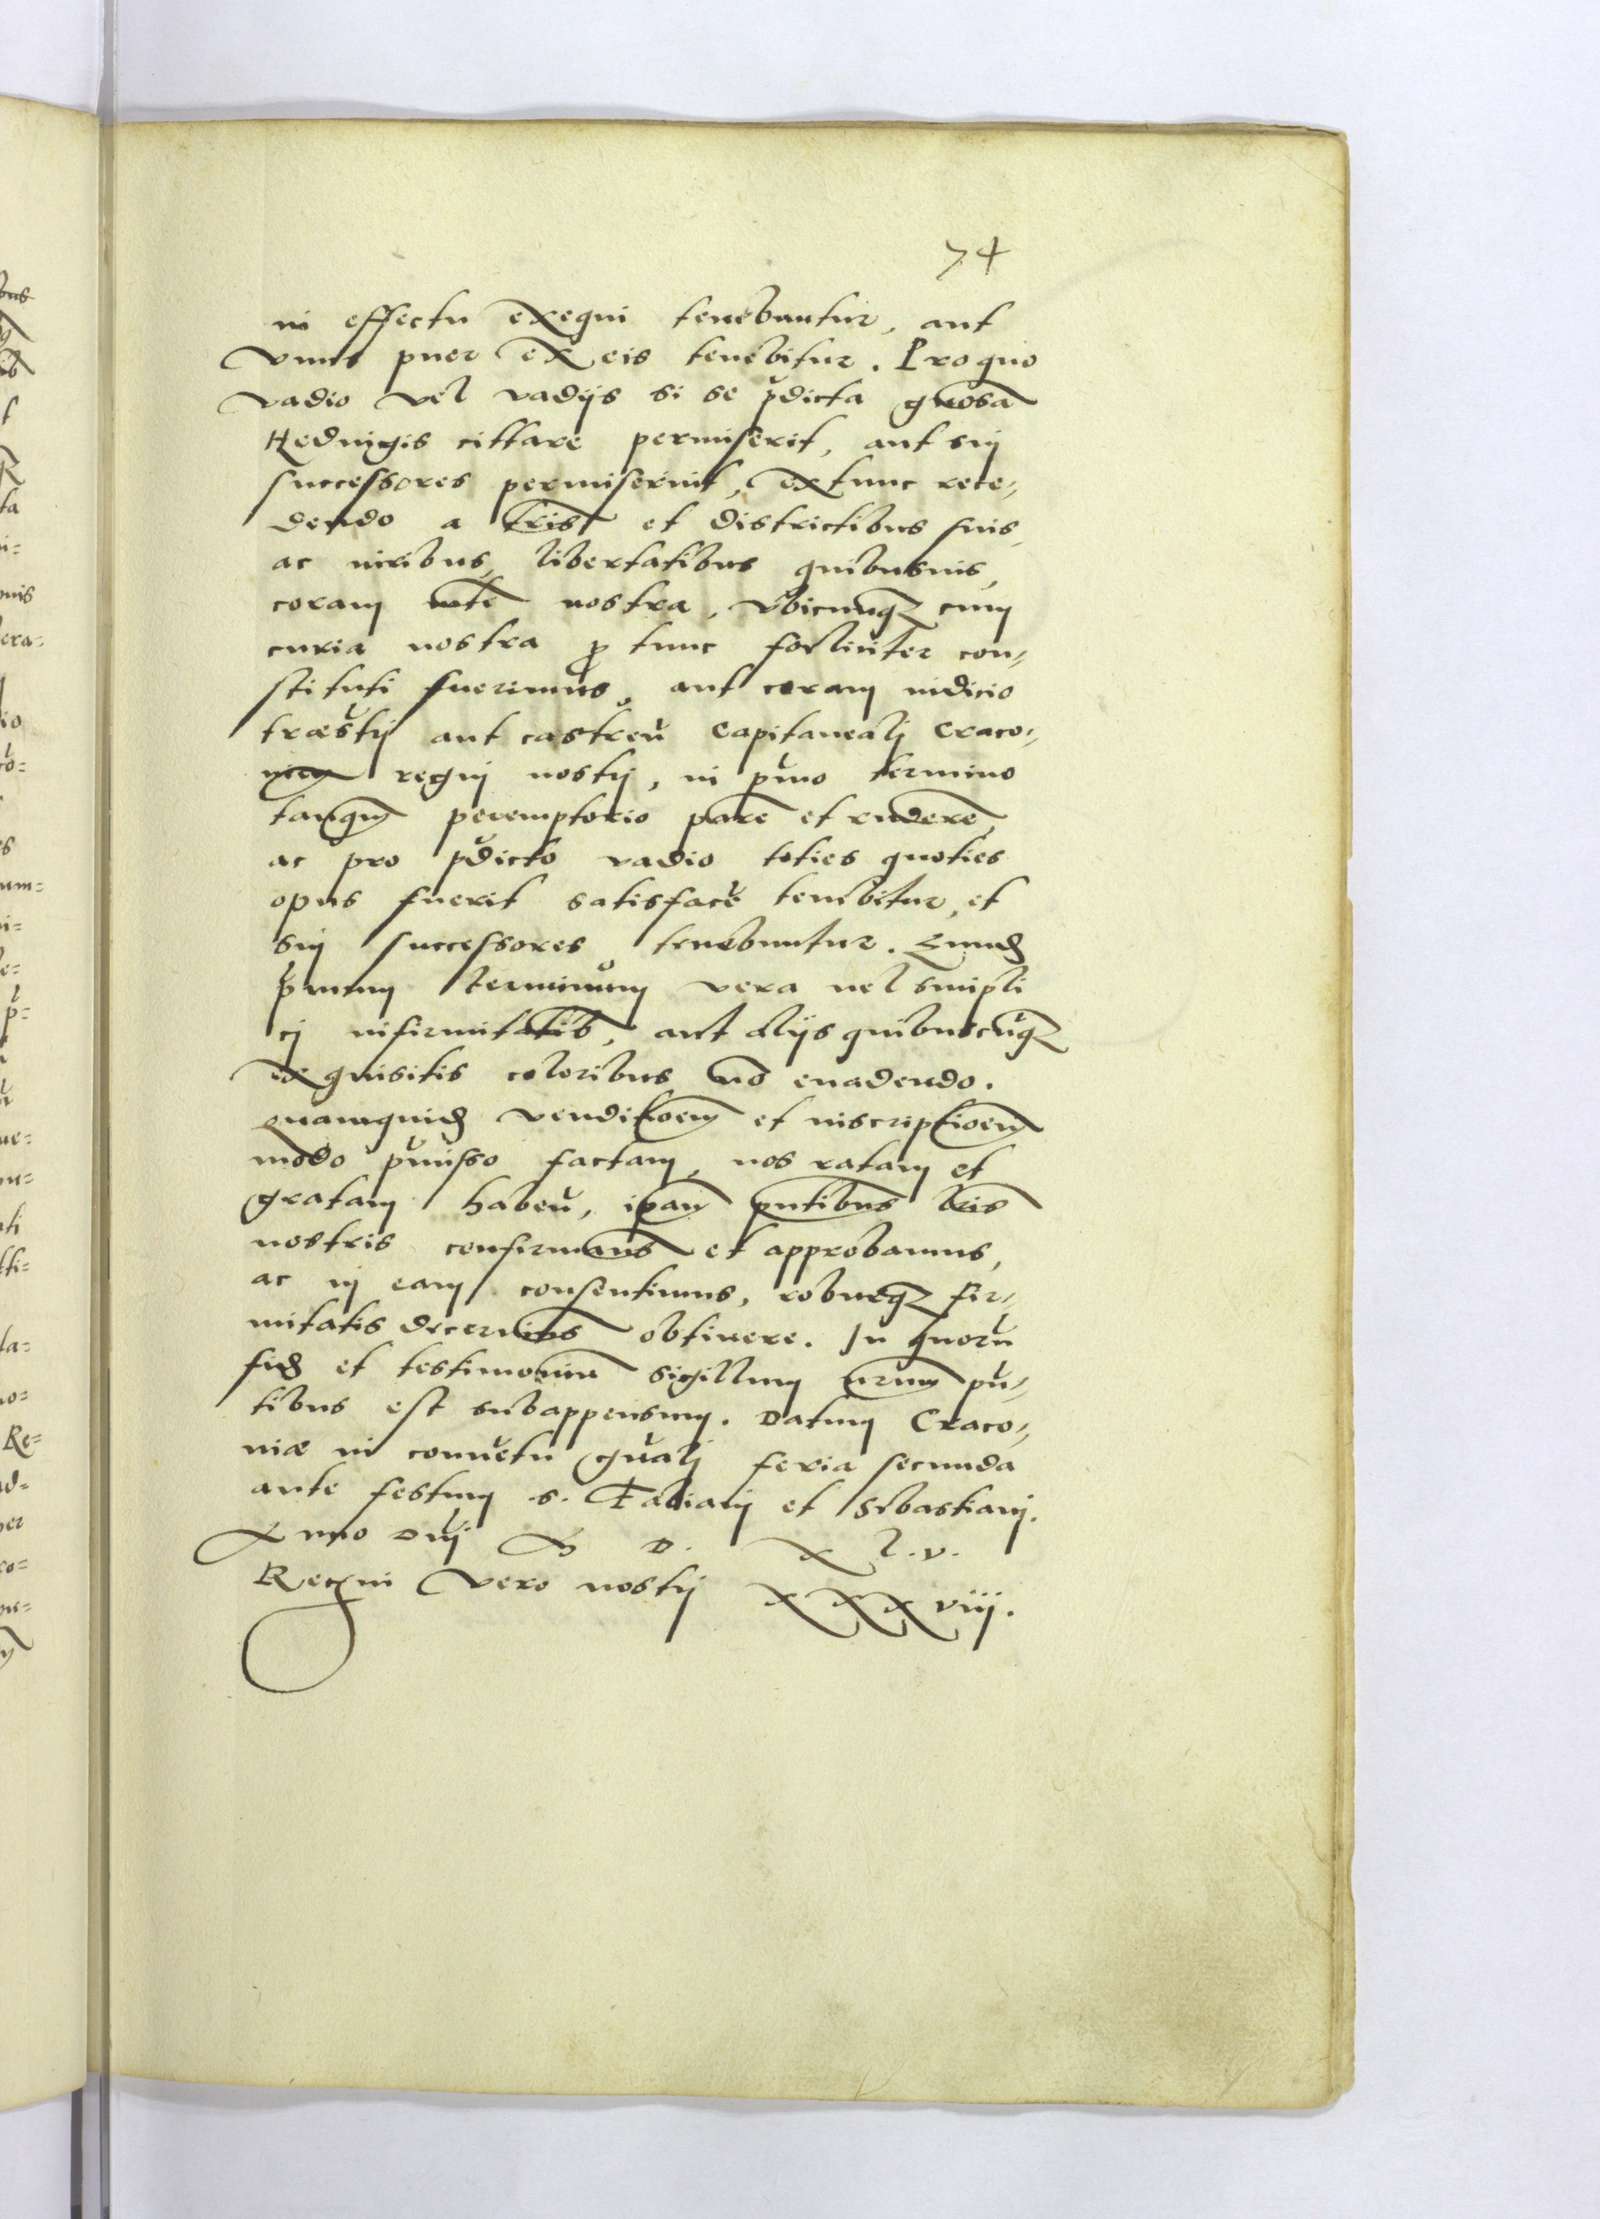 74
in effectu exequi tenebuntur, aut
vnus puer ex eis tenebitur. Pro quo
vadio vel vadijs si se p̆dicta gnosã
Heduigis cittare permiserit, aut sui
successores permiserint, extunc rece-
dendo a tris̃ et districtibus suis
ac iuribus, libertatibus quibusuis,
coram mte nostra, vbicunq₃ cum
curia nostra ꝓ tunc fœliciter con-
stituti fuerimus, aut coram iudicio
træstrj aut castreŭ Capitanealj Craco-
regnj nostrj, in p̆mo termino
tanqm̃ peremptorio parẽ et rnderẽ,
ac pro p̆dicto vadio toties quoties
opus fuerit satisfacĕ tenebitur, et
sui successores tenebuntur. Quend
p̆mum terminum vera uel simpli
cj infirmitatib, aut alijs quibuscŭq₃
exquisitis coloribus nõ euadendo.
Quamquid venditioem̃ et inscriptioem̃
modo p̆misso factam, nos ratam et
gratam habeŭ, ipam̃ pntibus lris̃
nostris confirmams̃ et approbamus,
ac in eam consentimus, roburq₃ fir-
mitatis decernims̃ obtinere. In quorŭ
fid et testimoniũ sigillum nrum̃ pn̆-
tibus est subappensum. Datum Craco-
niæ in conuĕtu gn̆alj feria secunda
ante festum s. Fabianj et Sebastianj.
Anno Dnj M D. X L. v.
Regni vero nostrj XXX viij.